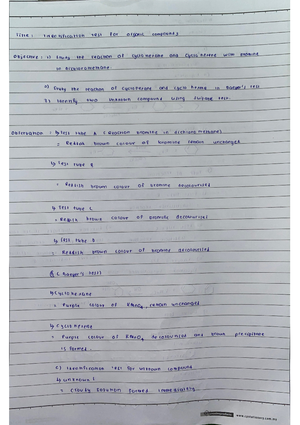 Title : Indentification test for organic compounds
Objective : 1) Study the reaction of cyclohexane and cyclohexene with bromine
in dichloromethane.
2) Study the reaction of cyclohexane and cyclohexene in Baeyer's test
3) Identify two unknown compound using iodine test.
Observation : ↳ Test tube A (Reaction bromine in dichloromethane)
- Reddish brown colour of bromine remain unchanged
↳ Test tube B
- Reddish brown colour of bromine decolourised
↳ Test tube C
- Reddish brown colour of bromine decolourised
↳ Test tube D
- Reddish brown colour of bromine decolourised
B ( Baeyer's test)
↳ Cyclohexane
- Purple colour of KMnO4 remain unchanged
↳ Cyclohexene
- Purple colour of KMnO4 decolourised and brown precipitate
is formed
C) Identification test for unknown compound
↳ unknown 1
- Cloudy solution formed immediately